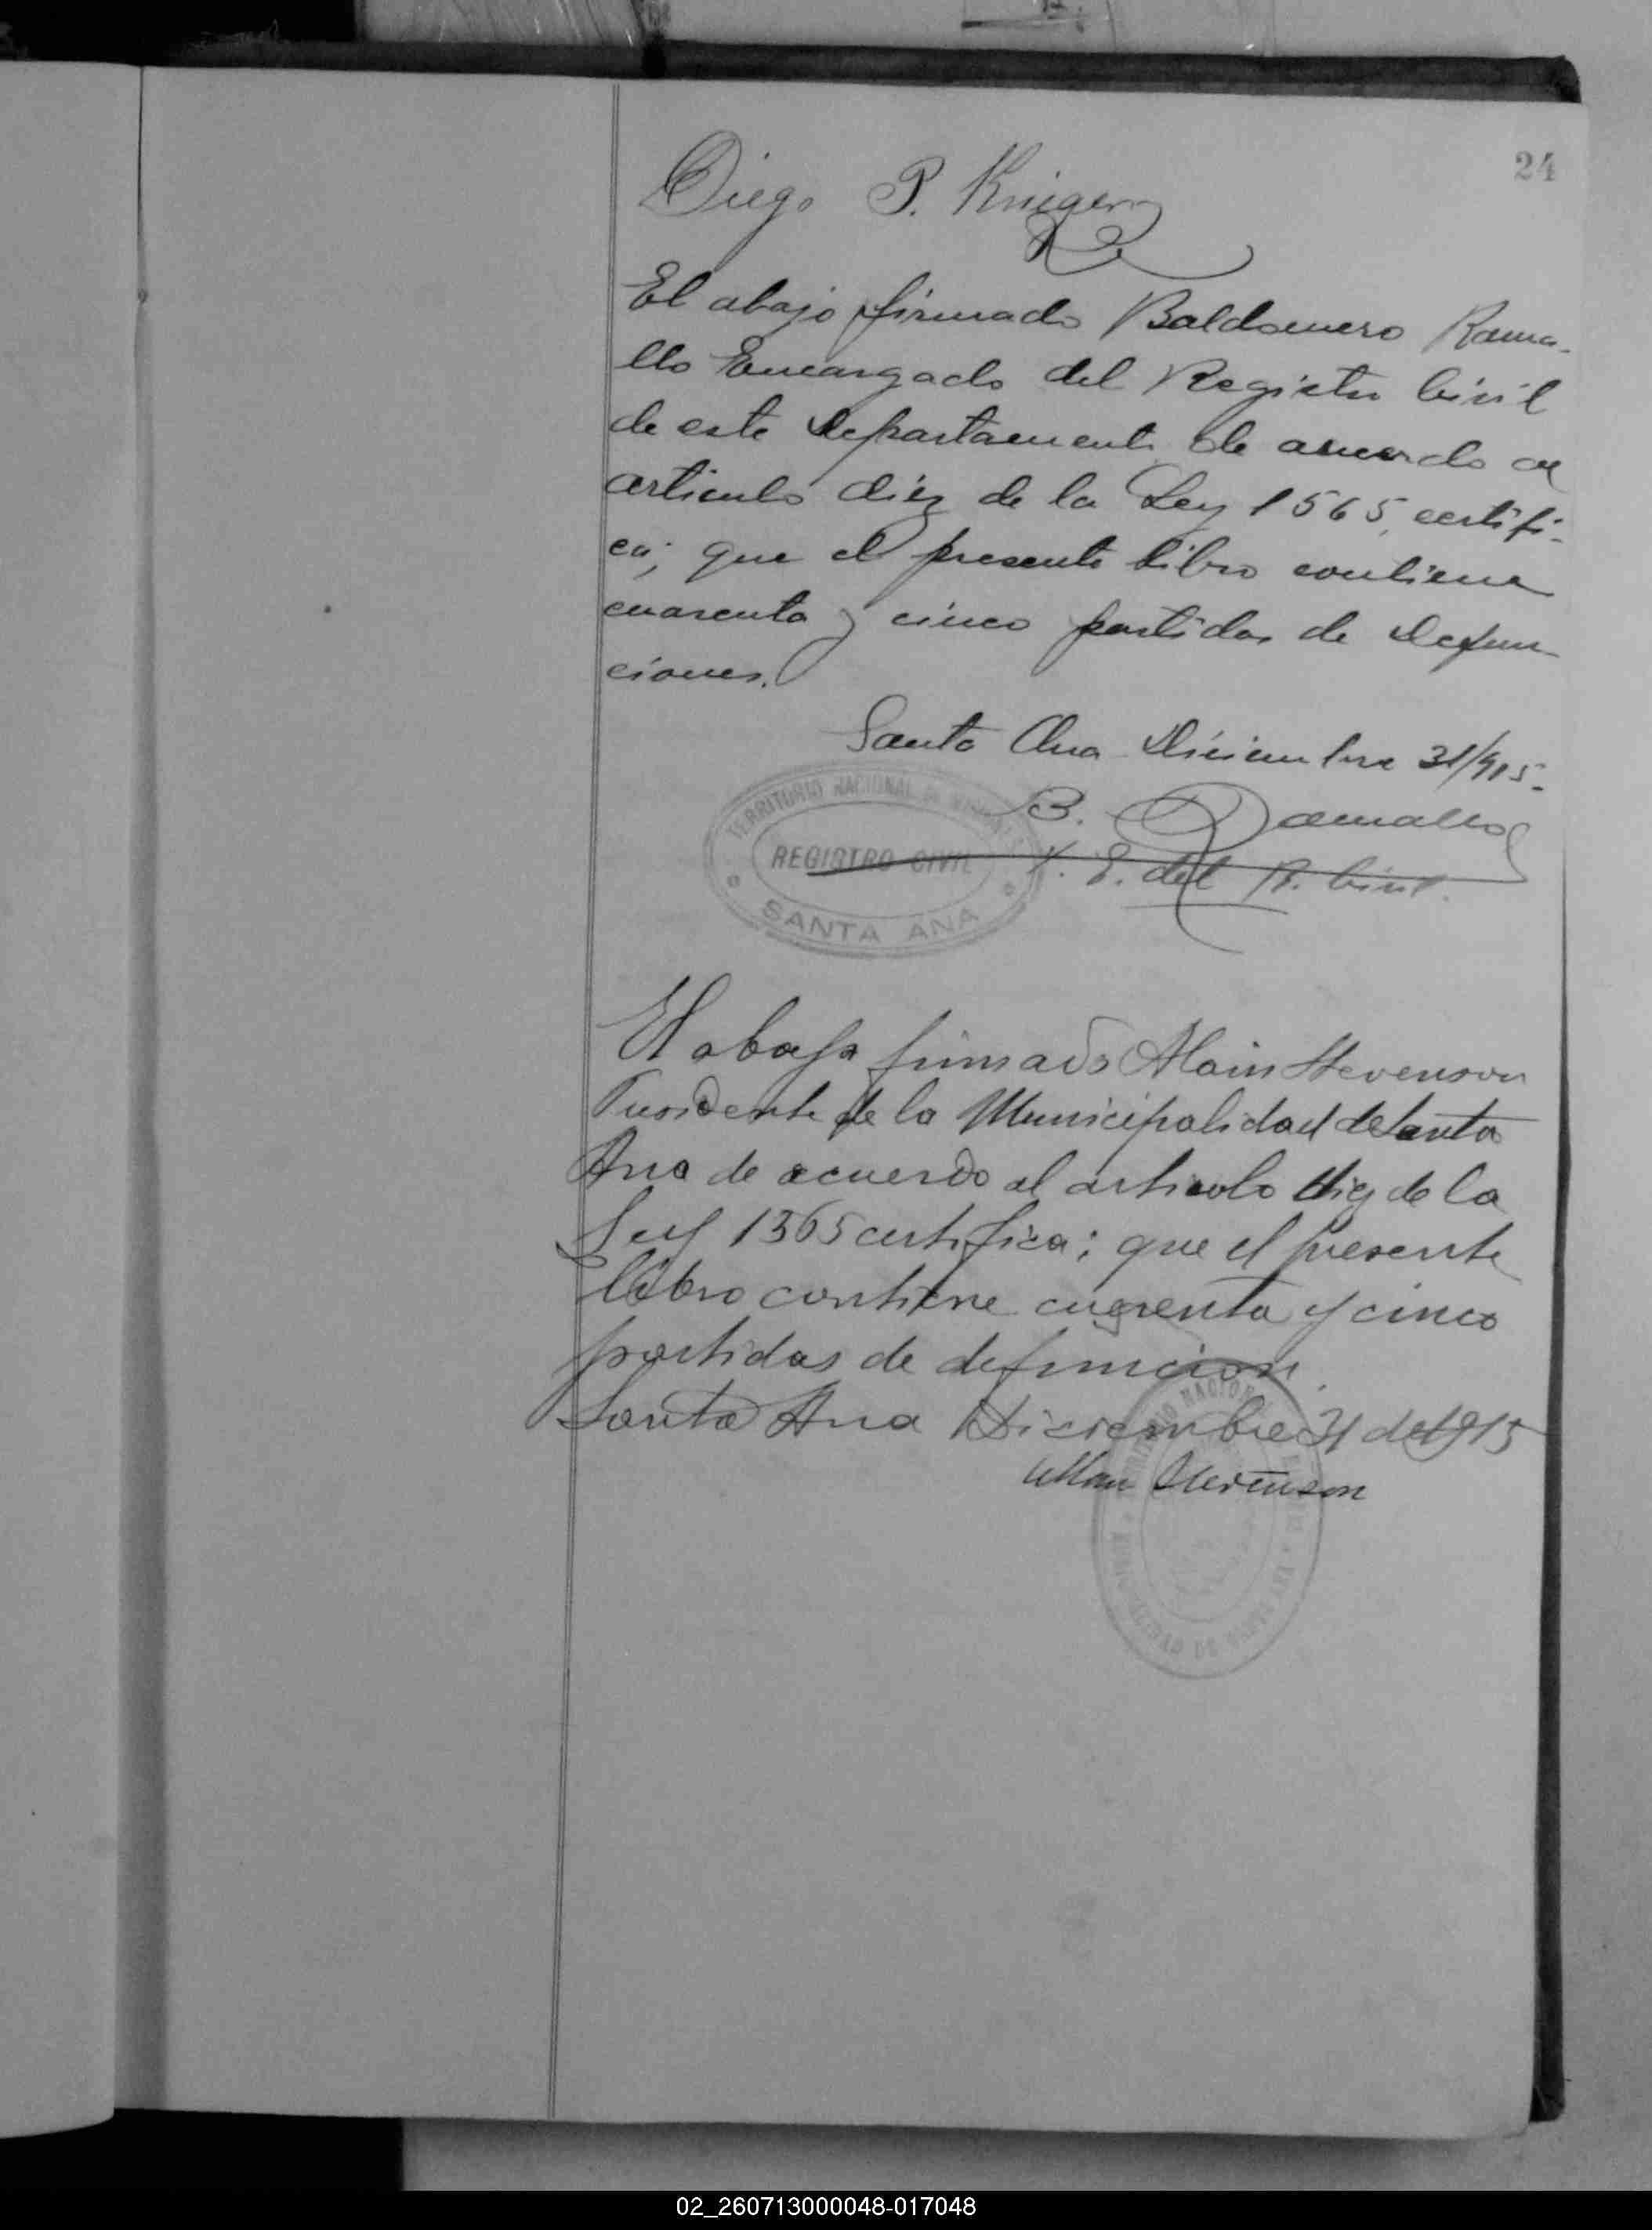 24
Diego P. Krieger
El abajo firmado Baldomero Rama-
llo Encargado del Registro Civil
de este Departamento de acuerdo al
articulo diez de la Ley 1565, certifi-
ca; que el presente libro contiene
cuarenta y cinco partidas de Defun
ciones.
Santa Ana Diciembre 31/915.
B. Ramallo
E. del R. Civil.
TERRITORIO NACIONAL DE MISIONES
REGISTRO CIVIL
SANTA ANA
El abajo firmado Alain Stevenson
Presidente de la Municipalidad de Santa
Ana de acuerdo al articolo diez de la
Ley 1565 certifica; que el presente
libro contiene cuarenta y cinco
partidas de defuncion.
Santa Ana Diciembre 31 de 1915
Allan Stevenson
02_260713000048-017048